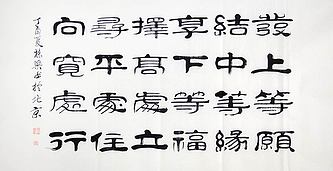 發上等願
結中等緣
享下等福
擇高處立
尋平處住
向寬處行
丁酉夏 於北京